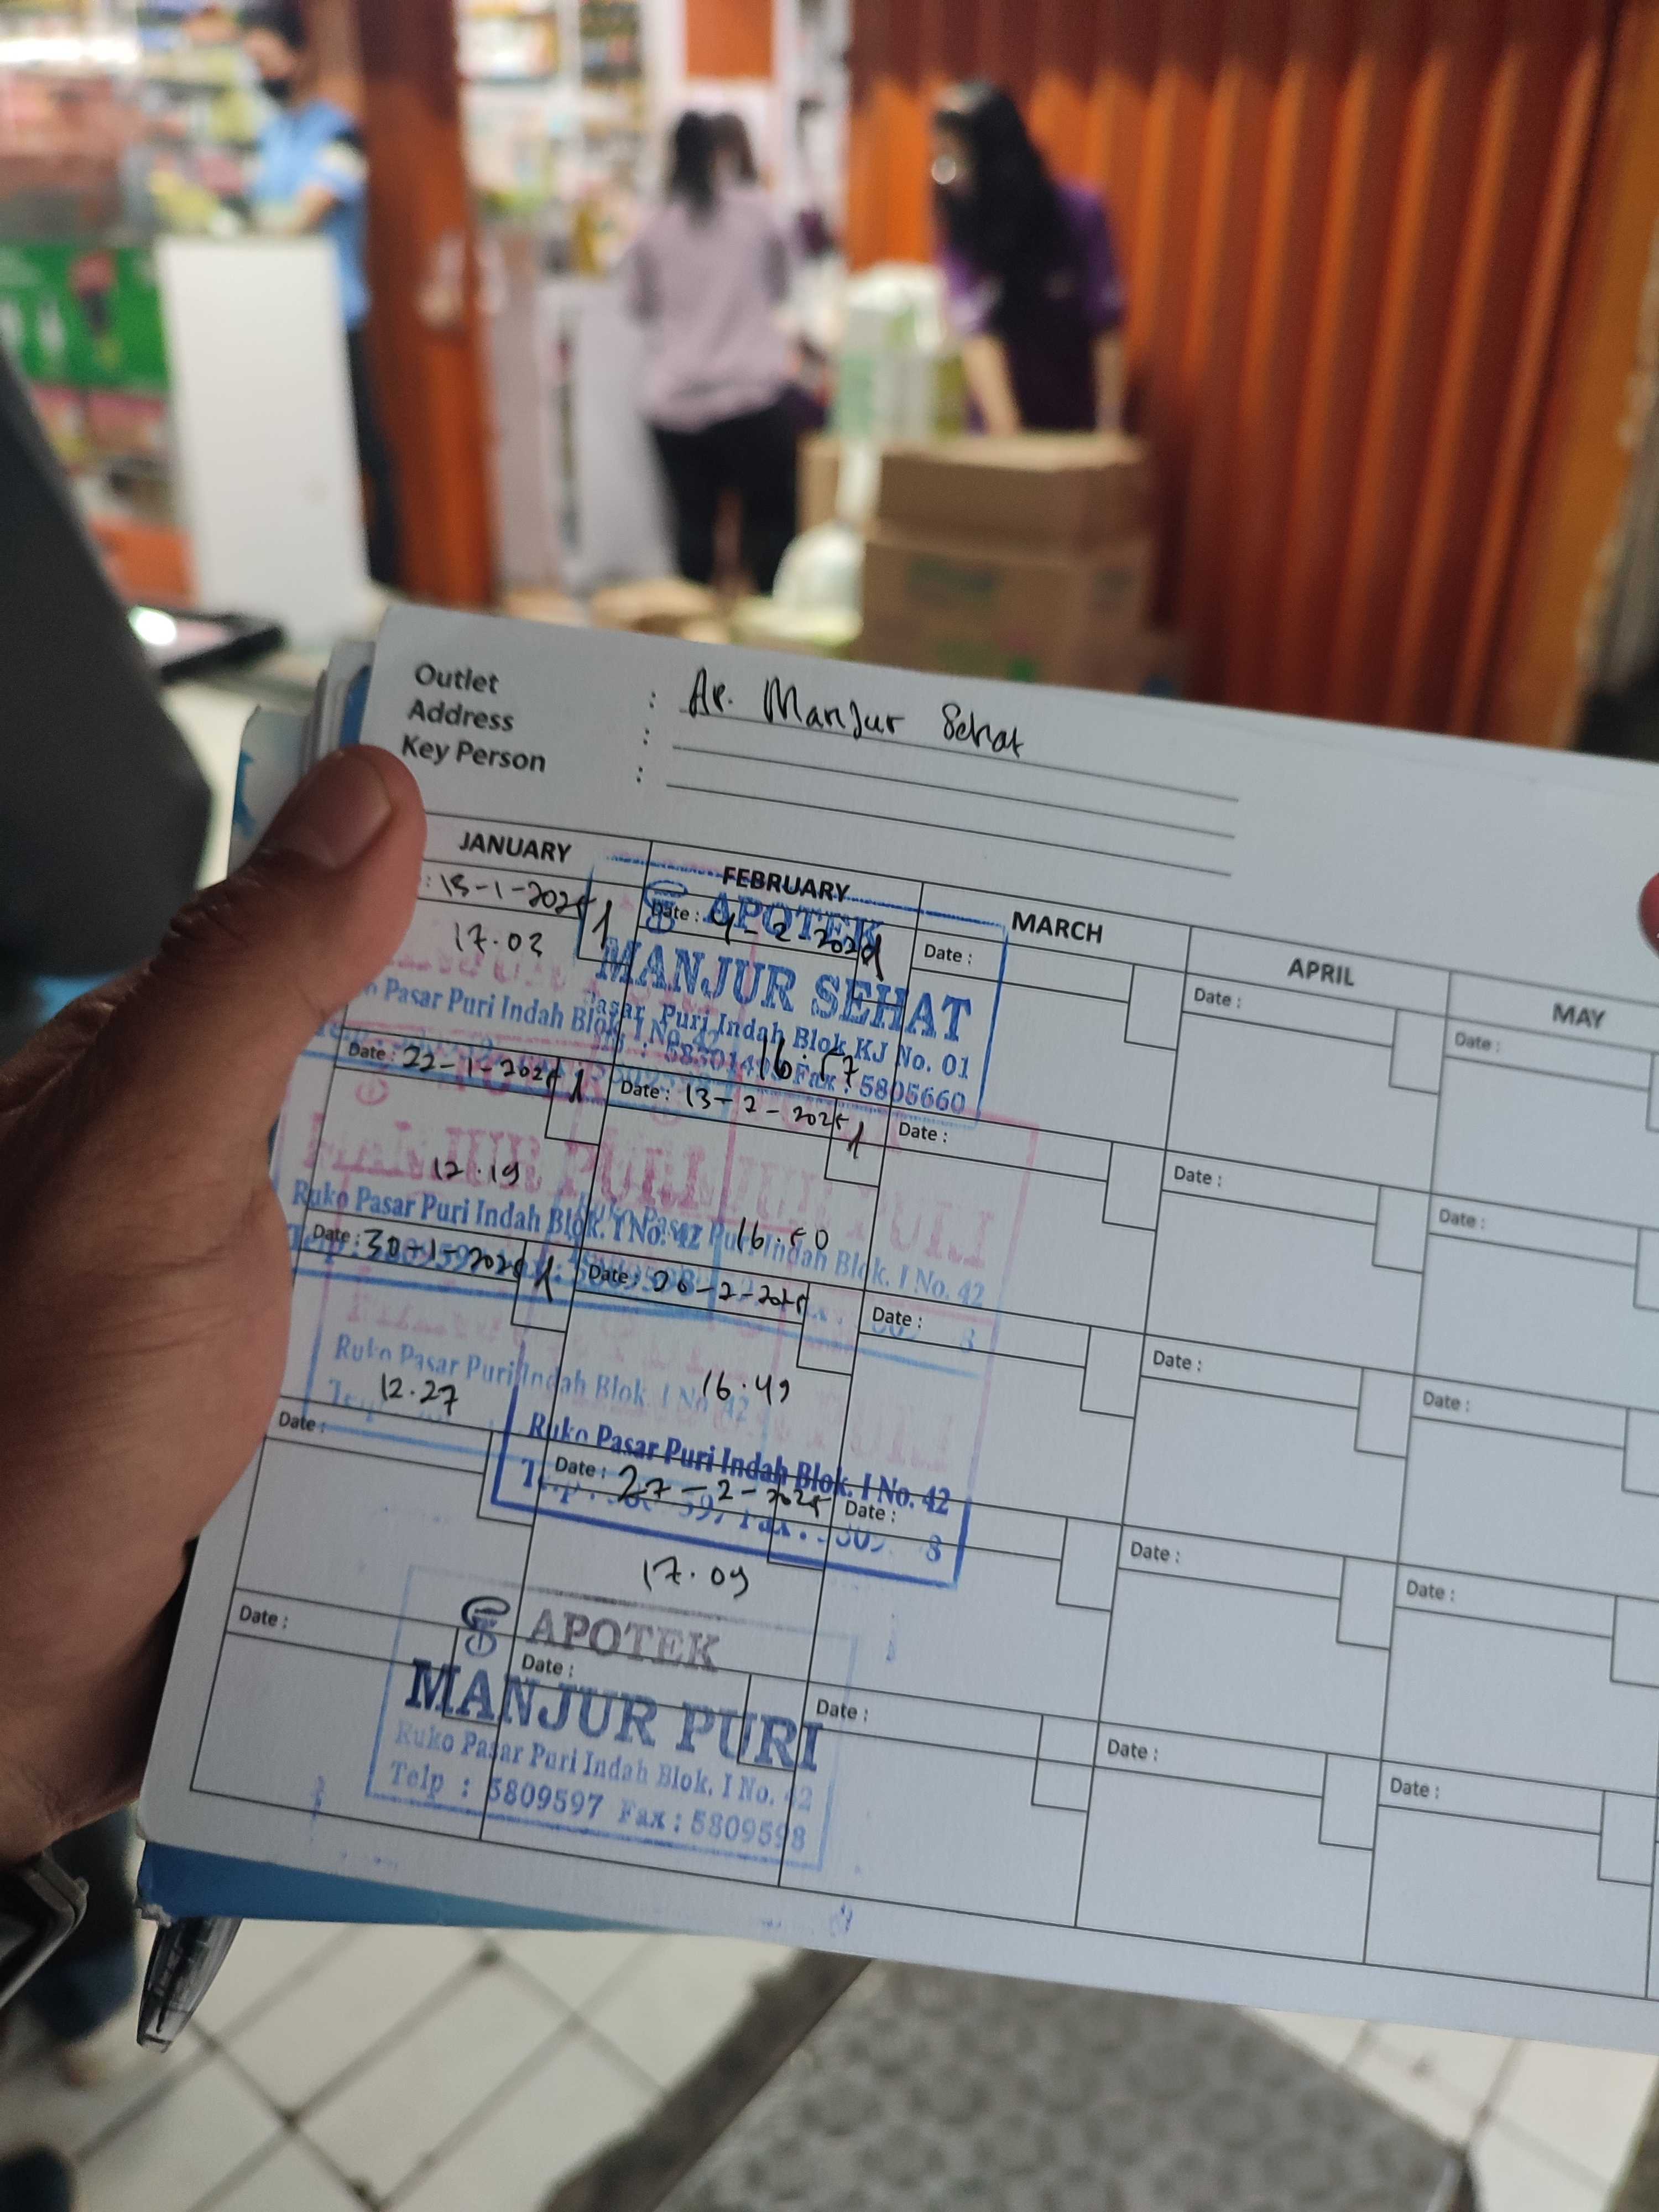 Outlet : Ap. Manjur Sehat
Address :
Key Person :
JANUARY FEBRUARY MARCH APRIL MAY
: 15-1-2025 1
17.02
Date : 4-2-2025 1
16.57
Date :
Date :
Date :
APOTEK
MANJUR SEHAT
Pasar Puri Indah Blok KJ No. 01
Fax : 5805660
Pasar Puri Indah Blok. I No. 42
Date : 22-1-2025 1
12.19
Date : 13-2-2025 1
16.50
Date :
Date :
Date :
MANJUR PURI
Ruko Pasar Puri Indah Blok. I No. 42
Puri Indah Blok. I No. 42
Date : 30-1-2025 1
12.27
Date : 20-2-2025
16.49
Date :
Date :
Date :
Ruko Pasar Puri Indah Blok. I No. 42
Ruko Pasar Puri Indah Blok. I No. 42
Date :
Date : 27-2-2025
17.09
Date :
Date :
Date :
Date :
Date :
Date :
Date :
Date :
APOTEK
MANJUR PURI
Ruko Pasar Puri Indah Blok. I No. 42
Telp : 5809597 Fax : 5809598